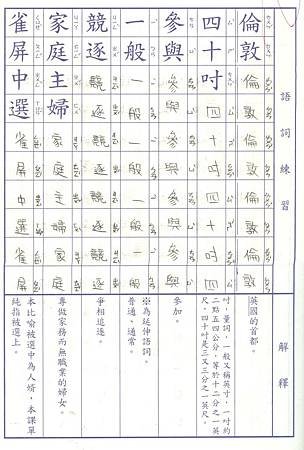 語詞練習
解釋
倫敦
倫敦倫敦倫敦倫敦
英國的首都。
四十吋
四十吋四十吋四
吋，量詞，一般又稱英寸，一吋約
二點五四公分，等於十二分之一英
尺，四十吋是三又三分之一英尺。
參與
參與參與參與參與
參加。
一般
一般一般一般一般
※為延伸語詞
普通、通常。
競逐
競逐競逐競逐競逐
爭相追逐。
家庭主婦
家庭主婦家庭
專做家務而無職業的婦女。
雀屏中選
雀屏中選雀屏
本比喻被選中為人婿，本課單
純指被選上。